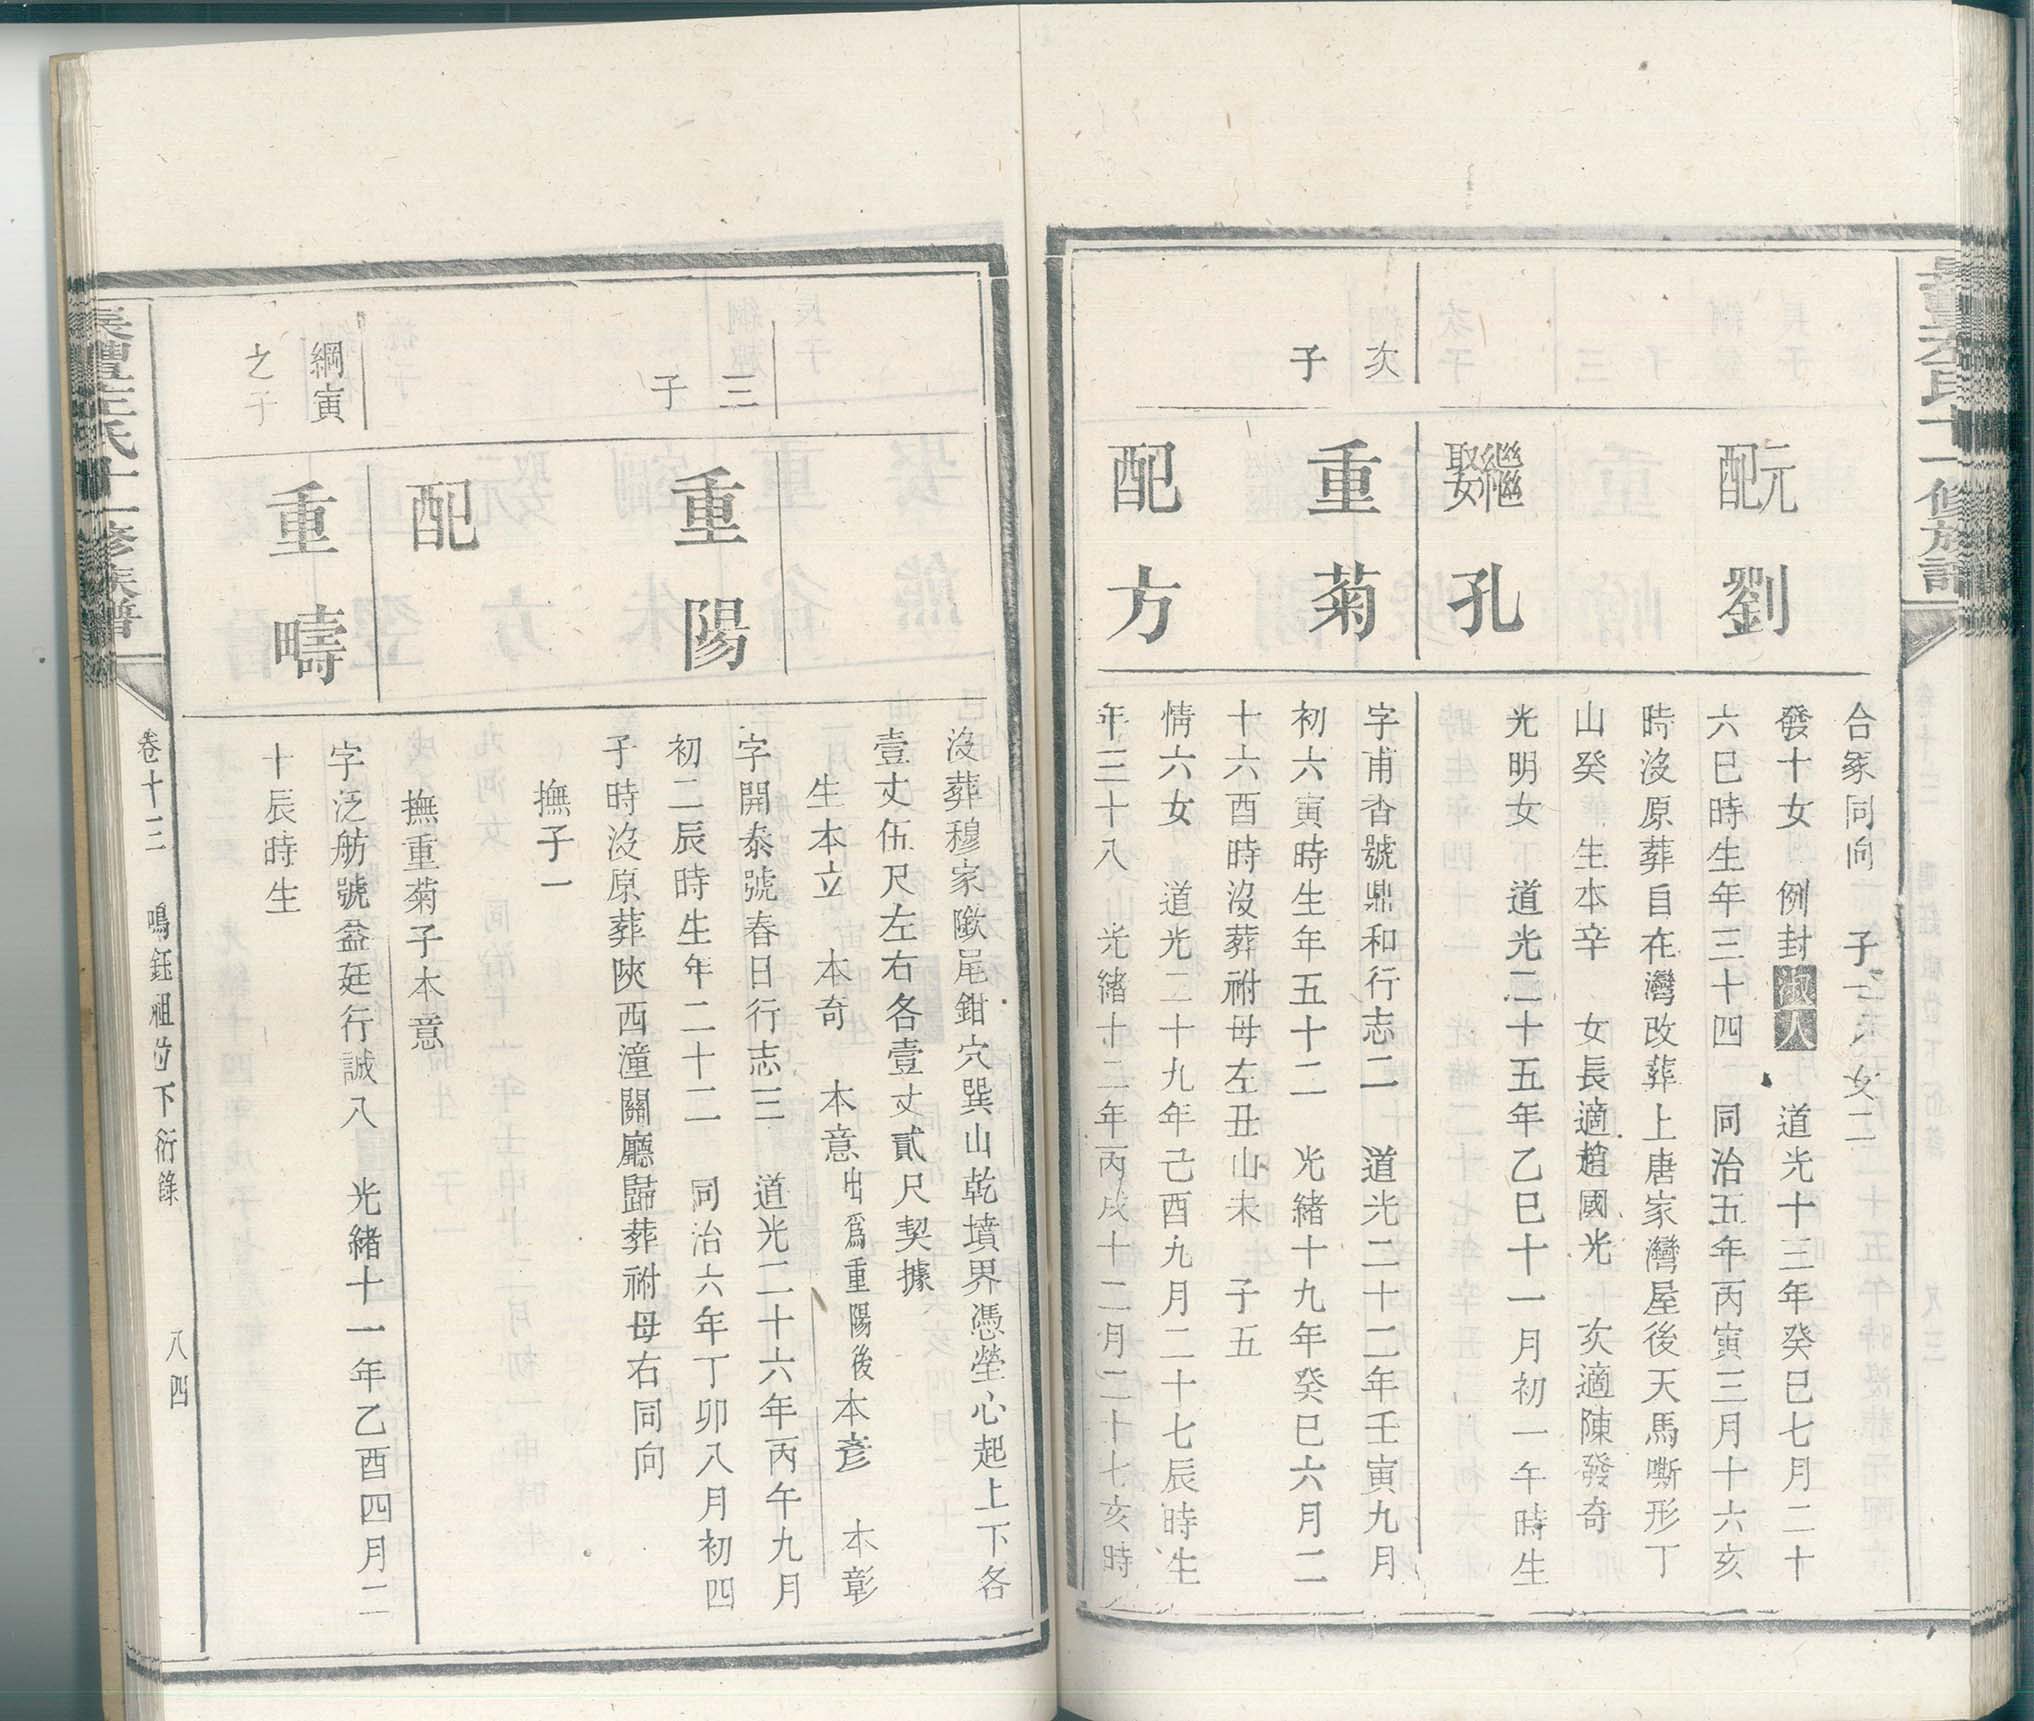 合冢同向　子一　女二
元配　劉
發十女　例封淑人　道光十三年癸巳七月二十
六巳時生年三十四　同治五年丙寅三月十六亥
時沒原葬自在灣改葬上唐家灣屋後天馬嘶形丁
山癸　生本辛　女長適趙國光　次適陳發奇
繼娶　孔
光明女　道光二十五年乙巳十一月初一午時生
次子
重菊
字甫杳號鼎和行志二　道光二十二年壬寅九月
初六寅時生年五十二　光緒十九年癸巳六月二
十六酉時沒葬祔母左丑山未　子五
配　方
情六女　道光二十九年己酉九月二十七辰時生
年三十八　光緒十二年丙戌十二月二十七亥時
沒葬穆家隞尾鉗穴巽山乾墳界憑塋心起上下各
壹丈伍尺左右各壹丈貳尺契據
生本立　本奇　本意出爲重陽後　本彥　本彰
三子
重陽
字開泰號春日行志三　道光二十六年丙午九月
初二辰時生年二十二　同治六年丁卯八月初四
子時沒原葬陝西潼關廳歸葬祔母右同向
撫子一
配
撫重菊子本意
綱寅之子
重疇
字泛舫號益廷行誠八　光緒十一年乙酉四月二
十辰時生
長澧左氏十一修族譜
卷十三　鳴鈺祖位下衍錄　八四